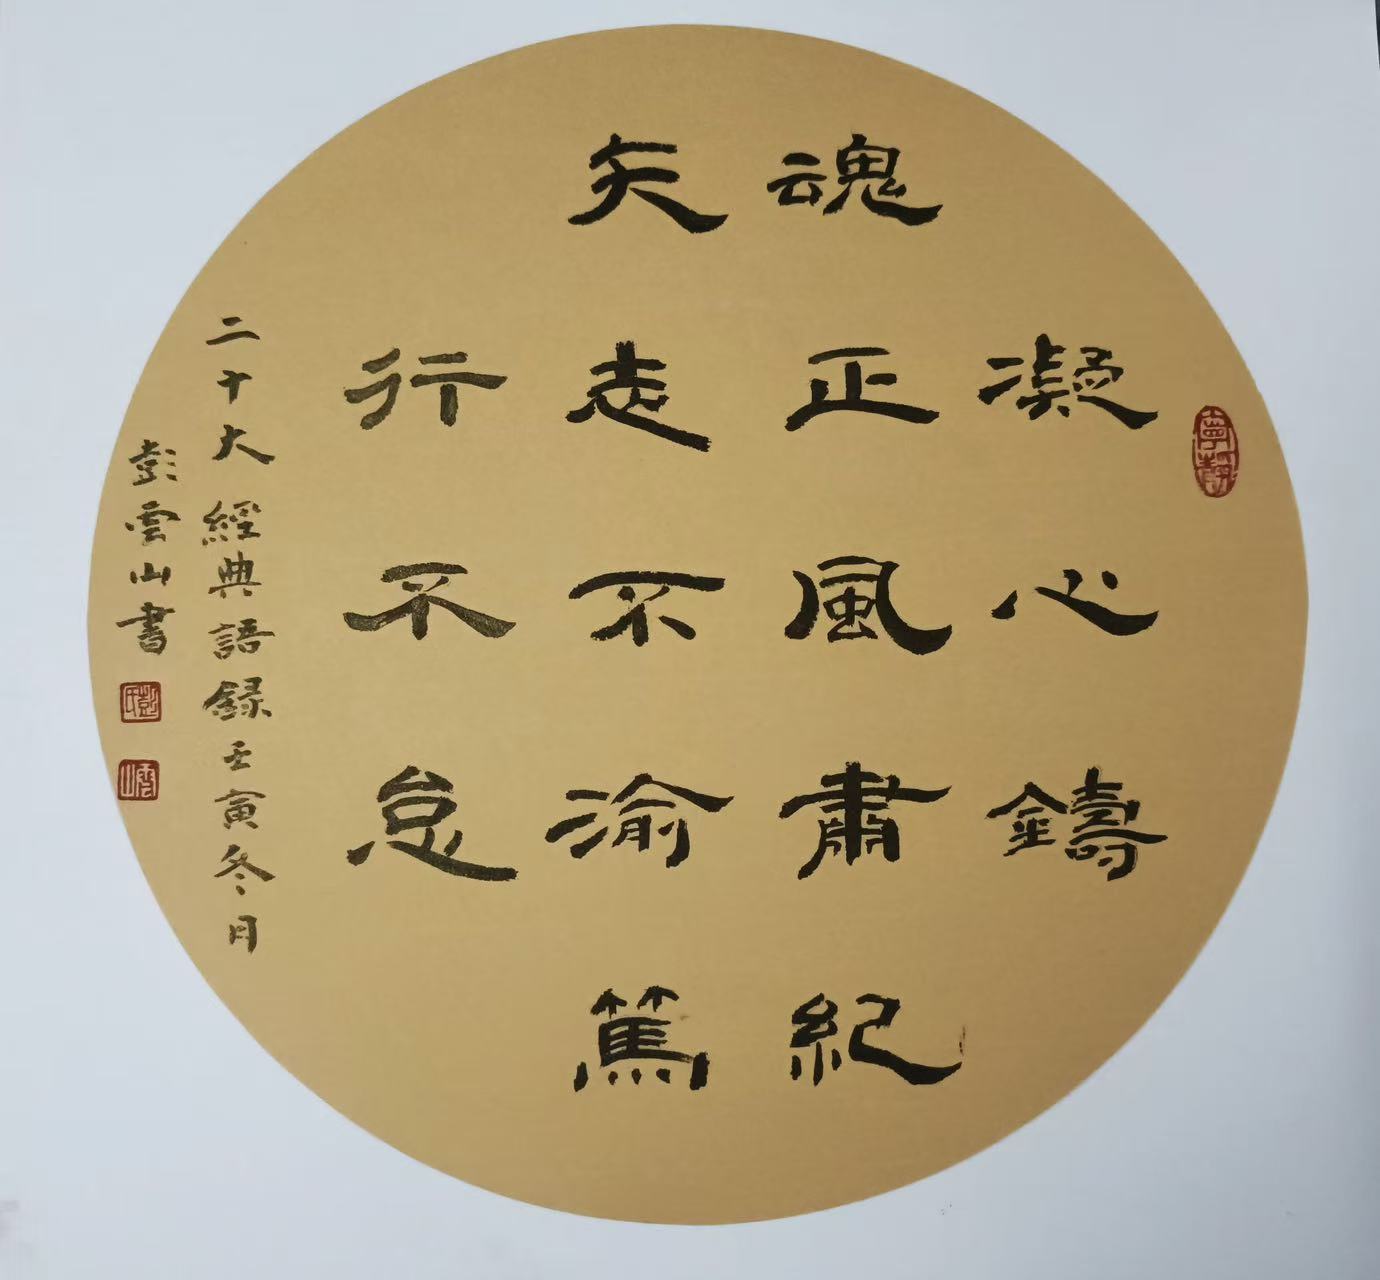 凝心鑄
魂正風肅紀
矢志不渝篤
行不怠
二十大經典語録壬寅冬月
彭雲山書
寧靜
彭氏
雲山